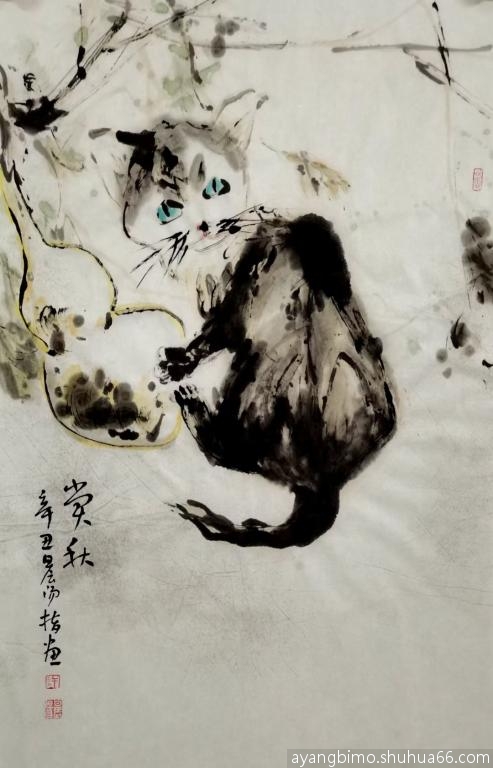 赏秋
辛丑晨阳指画
ayangbimo.shuhua66.com